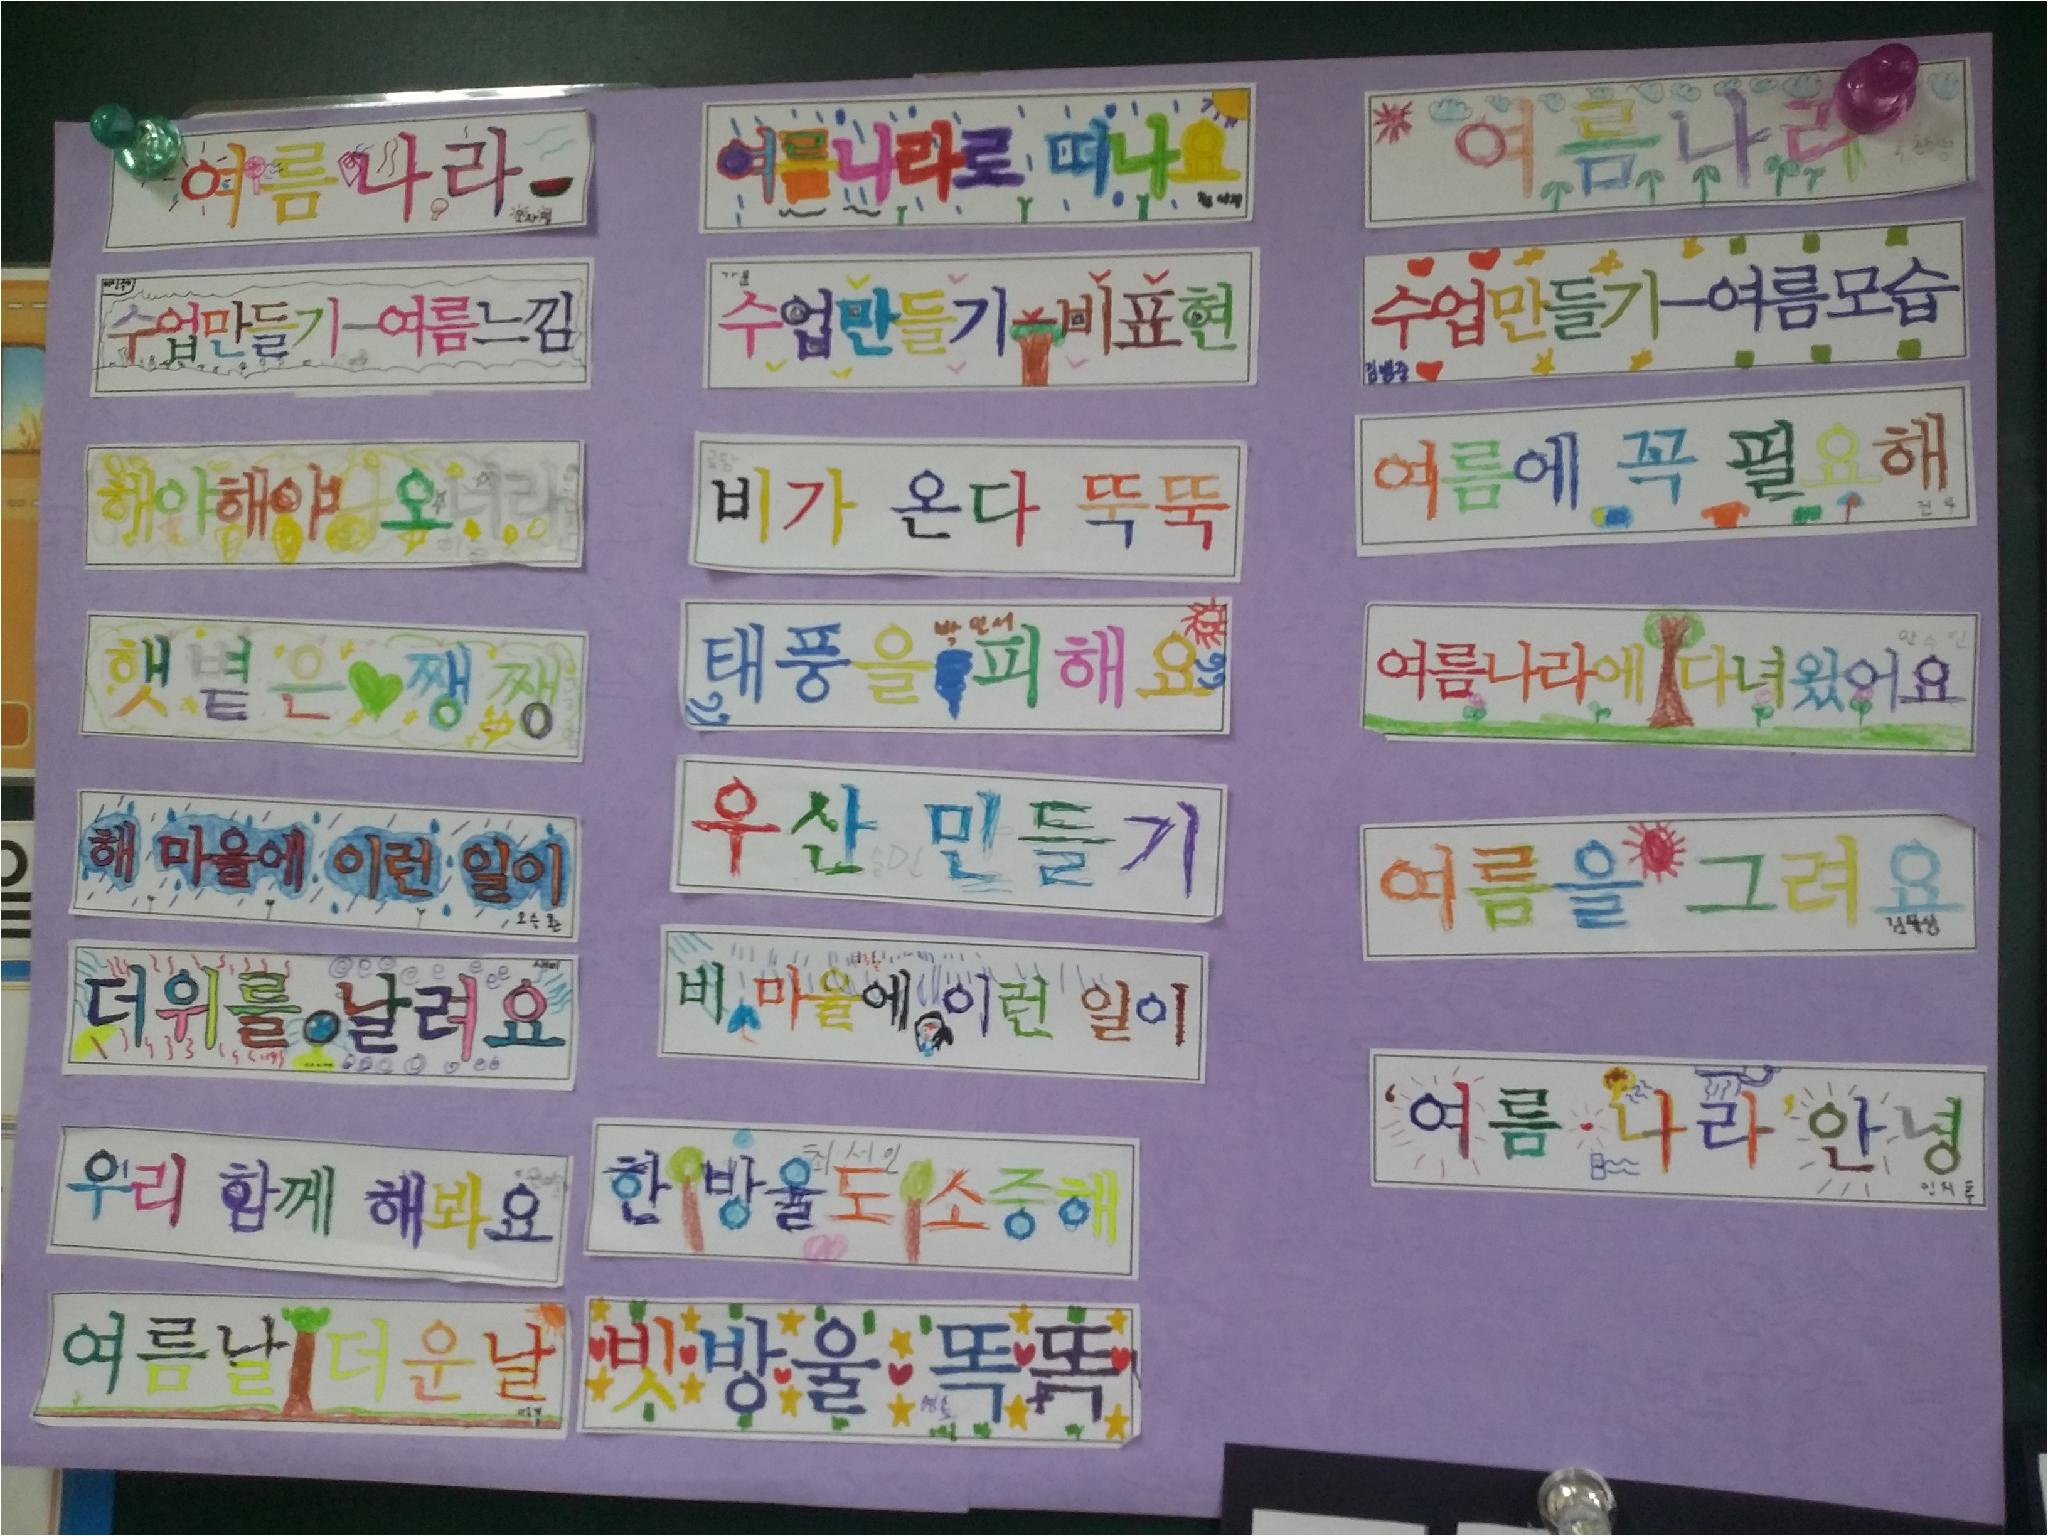 여름나라
수업만들기-여름느낌
해야해야나오너라
햇볕은 쨍쨍
해 마을에 이런 일이
오승훈
더위를 날려요
우리 함께 해봐요
여름날 더운날
여름나라로 떠나요
수업만들기-비표현
비가 온다 뚝뚝
태풍을 피해요
박민서
우산 만들기
승민
비 마을에 이런 일이
한방울도 소중해
최서인
빗방울 똑똑
여름나라
수업만들기-여름모습
김범중
여름에 꼭 필요해
여름나라에 다녀왔어요
안수민
여름을 그려요
'여름 나라' 안녕